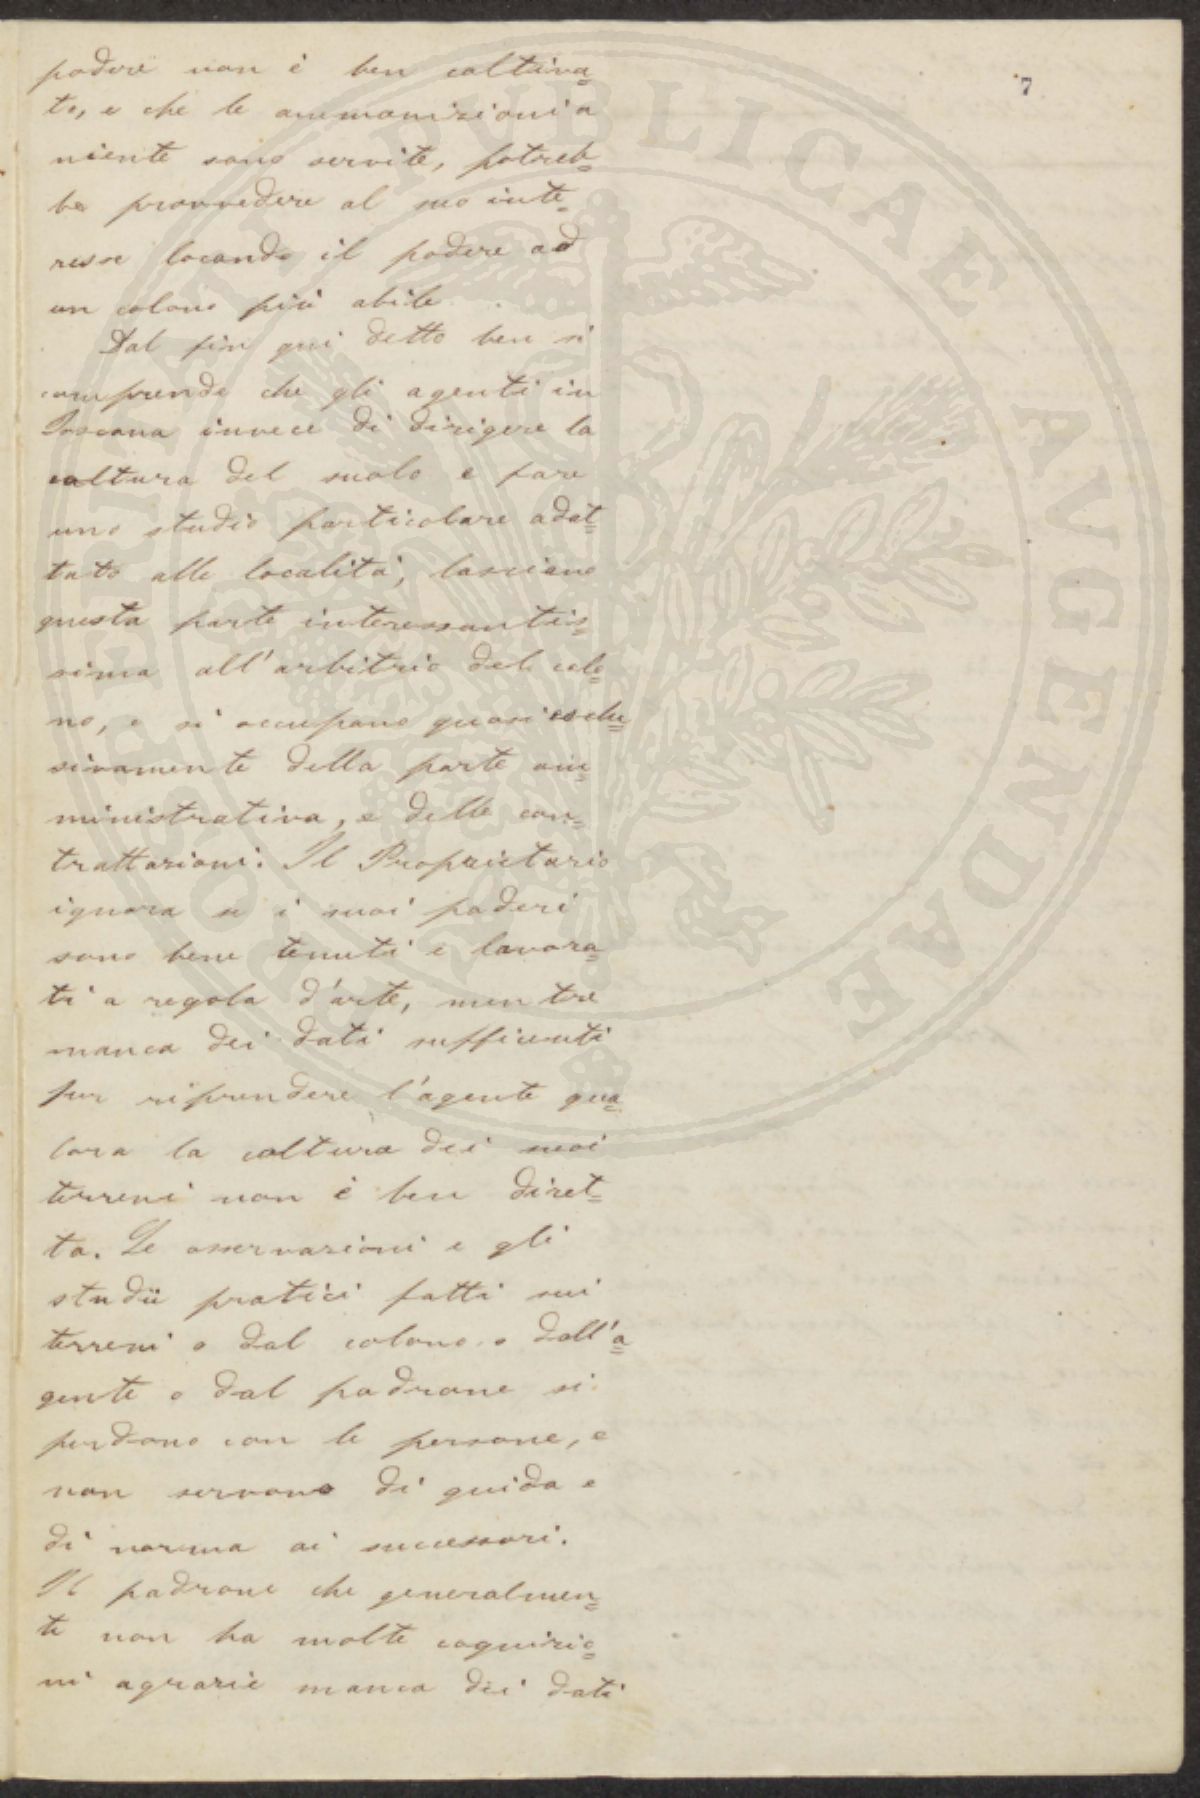 7
podere non è ben coltiva=
to, e che le ammonizioni a
niente sono servite, potreb=
be provvedere al suo inte=
resse locando il podere ad
un colono più abile.
Dal fin qui detto ben si
comprende che gli agenti in
Toscana invece di dirigere la
coltura del suolo e fare
uno studio particolare adat=
tato alle località, lasciano
questa parte interessantis=
sima all'arbitrio del colo=
no, e si occupano quasi esclu=
sivamente della parte am=
ministrativa, e delle con=
trattazioni. Il Proprietario
ignora se i suoi poderi
sono bene tenuti e lavora=
ti a regola d'arte, mentre
manca dei dati sufficenti
per riprendere l'agente qua=
lora la coltura dei suoi
terreni non è ben diret=
ta. Le osservazioni e gli
studii pratici fatti sui
terreni o dal colono o dall'a=
gente o dal padrone si
perdono con le persone, e
non servono di guida e
di norma ai successori.
Il padrone che generalmen=
te non ha molte cognizio=
ni agrarie manca dei dati
PUBLICAE AVGENDAE